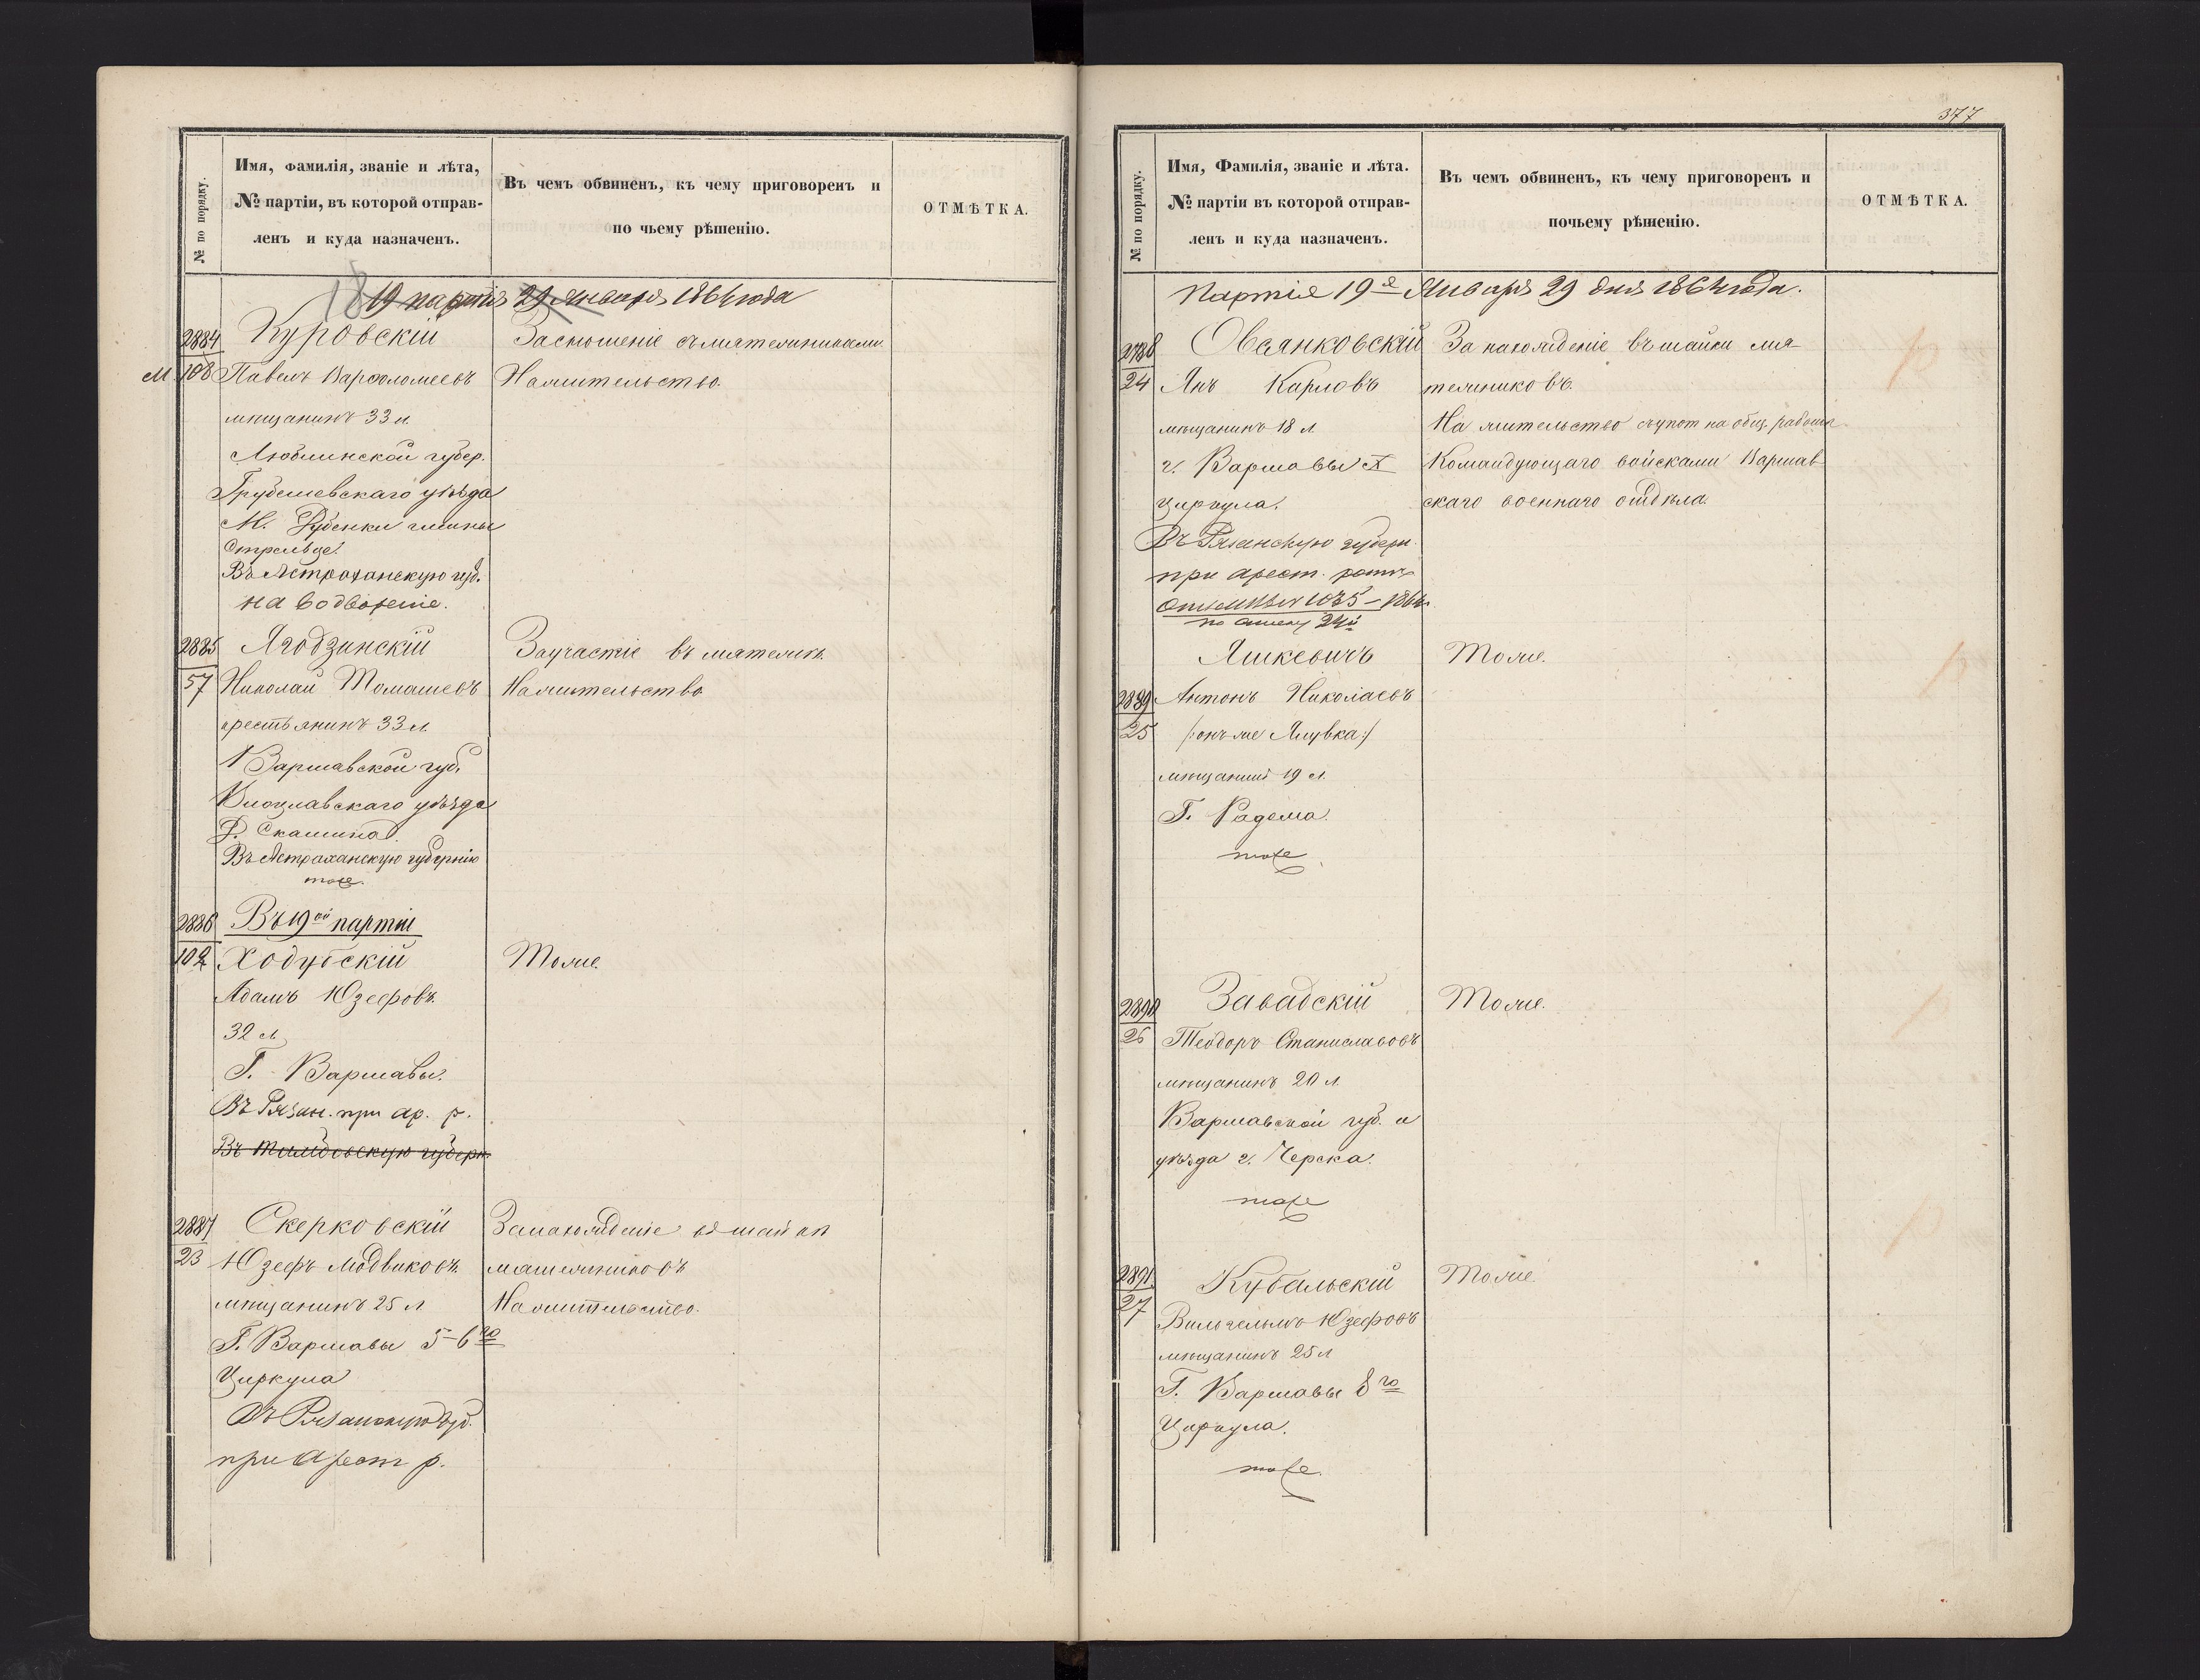 № по порядку.
Имя, фамилія, званіе и лѣта,
№ партіи, въ которой отправ-
ленъ и куда назначенъ.
Въ чемъ обвиненъ, къ чему приговоренъ и
по чьему рѣшенію.
ОТМѢТКА.
18
19 партія 29 Января 1864 года
2884
М. 108
Куровскій
Павелъ Варфоломеевъ
мѣщанинъ 33 л.
Люблинской губер.
Грубешевскаго уѣзда
М. Дубенки гмины
Стрельце.
Въ Астраханскую губ.
на водвореніе.
За сношеніе съ мятежниками
На жительство.
2885
57
Ягодзинскій
Николай Томашевъ
крестьянинъ 33 л.
Варшавской губ.
Влоцлавскаго уѣзда
Д.
Въ Астраханскую губернію
тоже.
За участіе въ мятежѣ.
На жительство
2886
102
Въ 19ой партіи
Ходубскій
Адамъ Юзефовъ.
32 л.
Г. Варшавы.
Въ Рязан. при ар. р.
Въ губерн.
Тоже.
2887
23
Скерковскій
Юзефъ Людвиковъ.
мѣщанинъ 25 л.
Г. Варшавы 5-6го
Циркула
Въ Рязанскую губ.
при Арест р.
За нахожденіе въ шайкѣ
мятежниковъ
На жительство.
377
№ по порядку.
Имя, Фамилія, званіе и лѣта.
№ партіи въ которой отправ-
ленъ и куда назначенъ.
Въ чемъ обвиненъ, къ чему приговоренъ и
почьему рѣшенію.
ОТМѢТКА.
Партія 19я Января 29 дня 1864 года.
2788
24
Овсянковскій
Янъ Карловъ
мѣщанинъ 18 л.
г. Варшавы X
циркула.
Въ Рязанскую губерн.
при арест. ротѣ
1035 – 1864
24й
За нахожденіе въ шайкѣ мя-
тежниковъ.
На жительство съ упот. на общ. работы
Командующаго войсками Варшав-
скаго военнаго отдѣла.
2889
25
Яшкевичъ
Антонъ Николаевъ
/: онъ же Яцувка :/
мѣщанинъ 19 л.
Г. Радома.
тоже
Тоже.
2890
26
Завадскій
Теодоръ Станиславовъ
мѣщанинъ 20 л.
Варшавской губ. и
уѣзда г. Черска.
тоже
Тоже.
2891
27
Кубальскій
Вильгельмъ Юзефовъ
мѣщанинъ 25 л
Г. Варшавы 8го
Циркула.
тоже.
Тоже